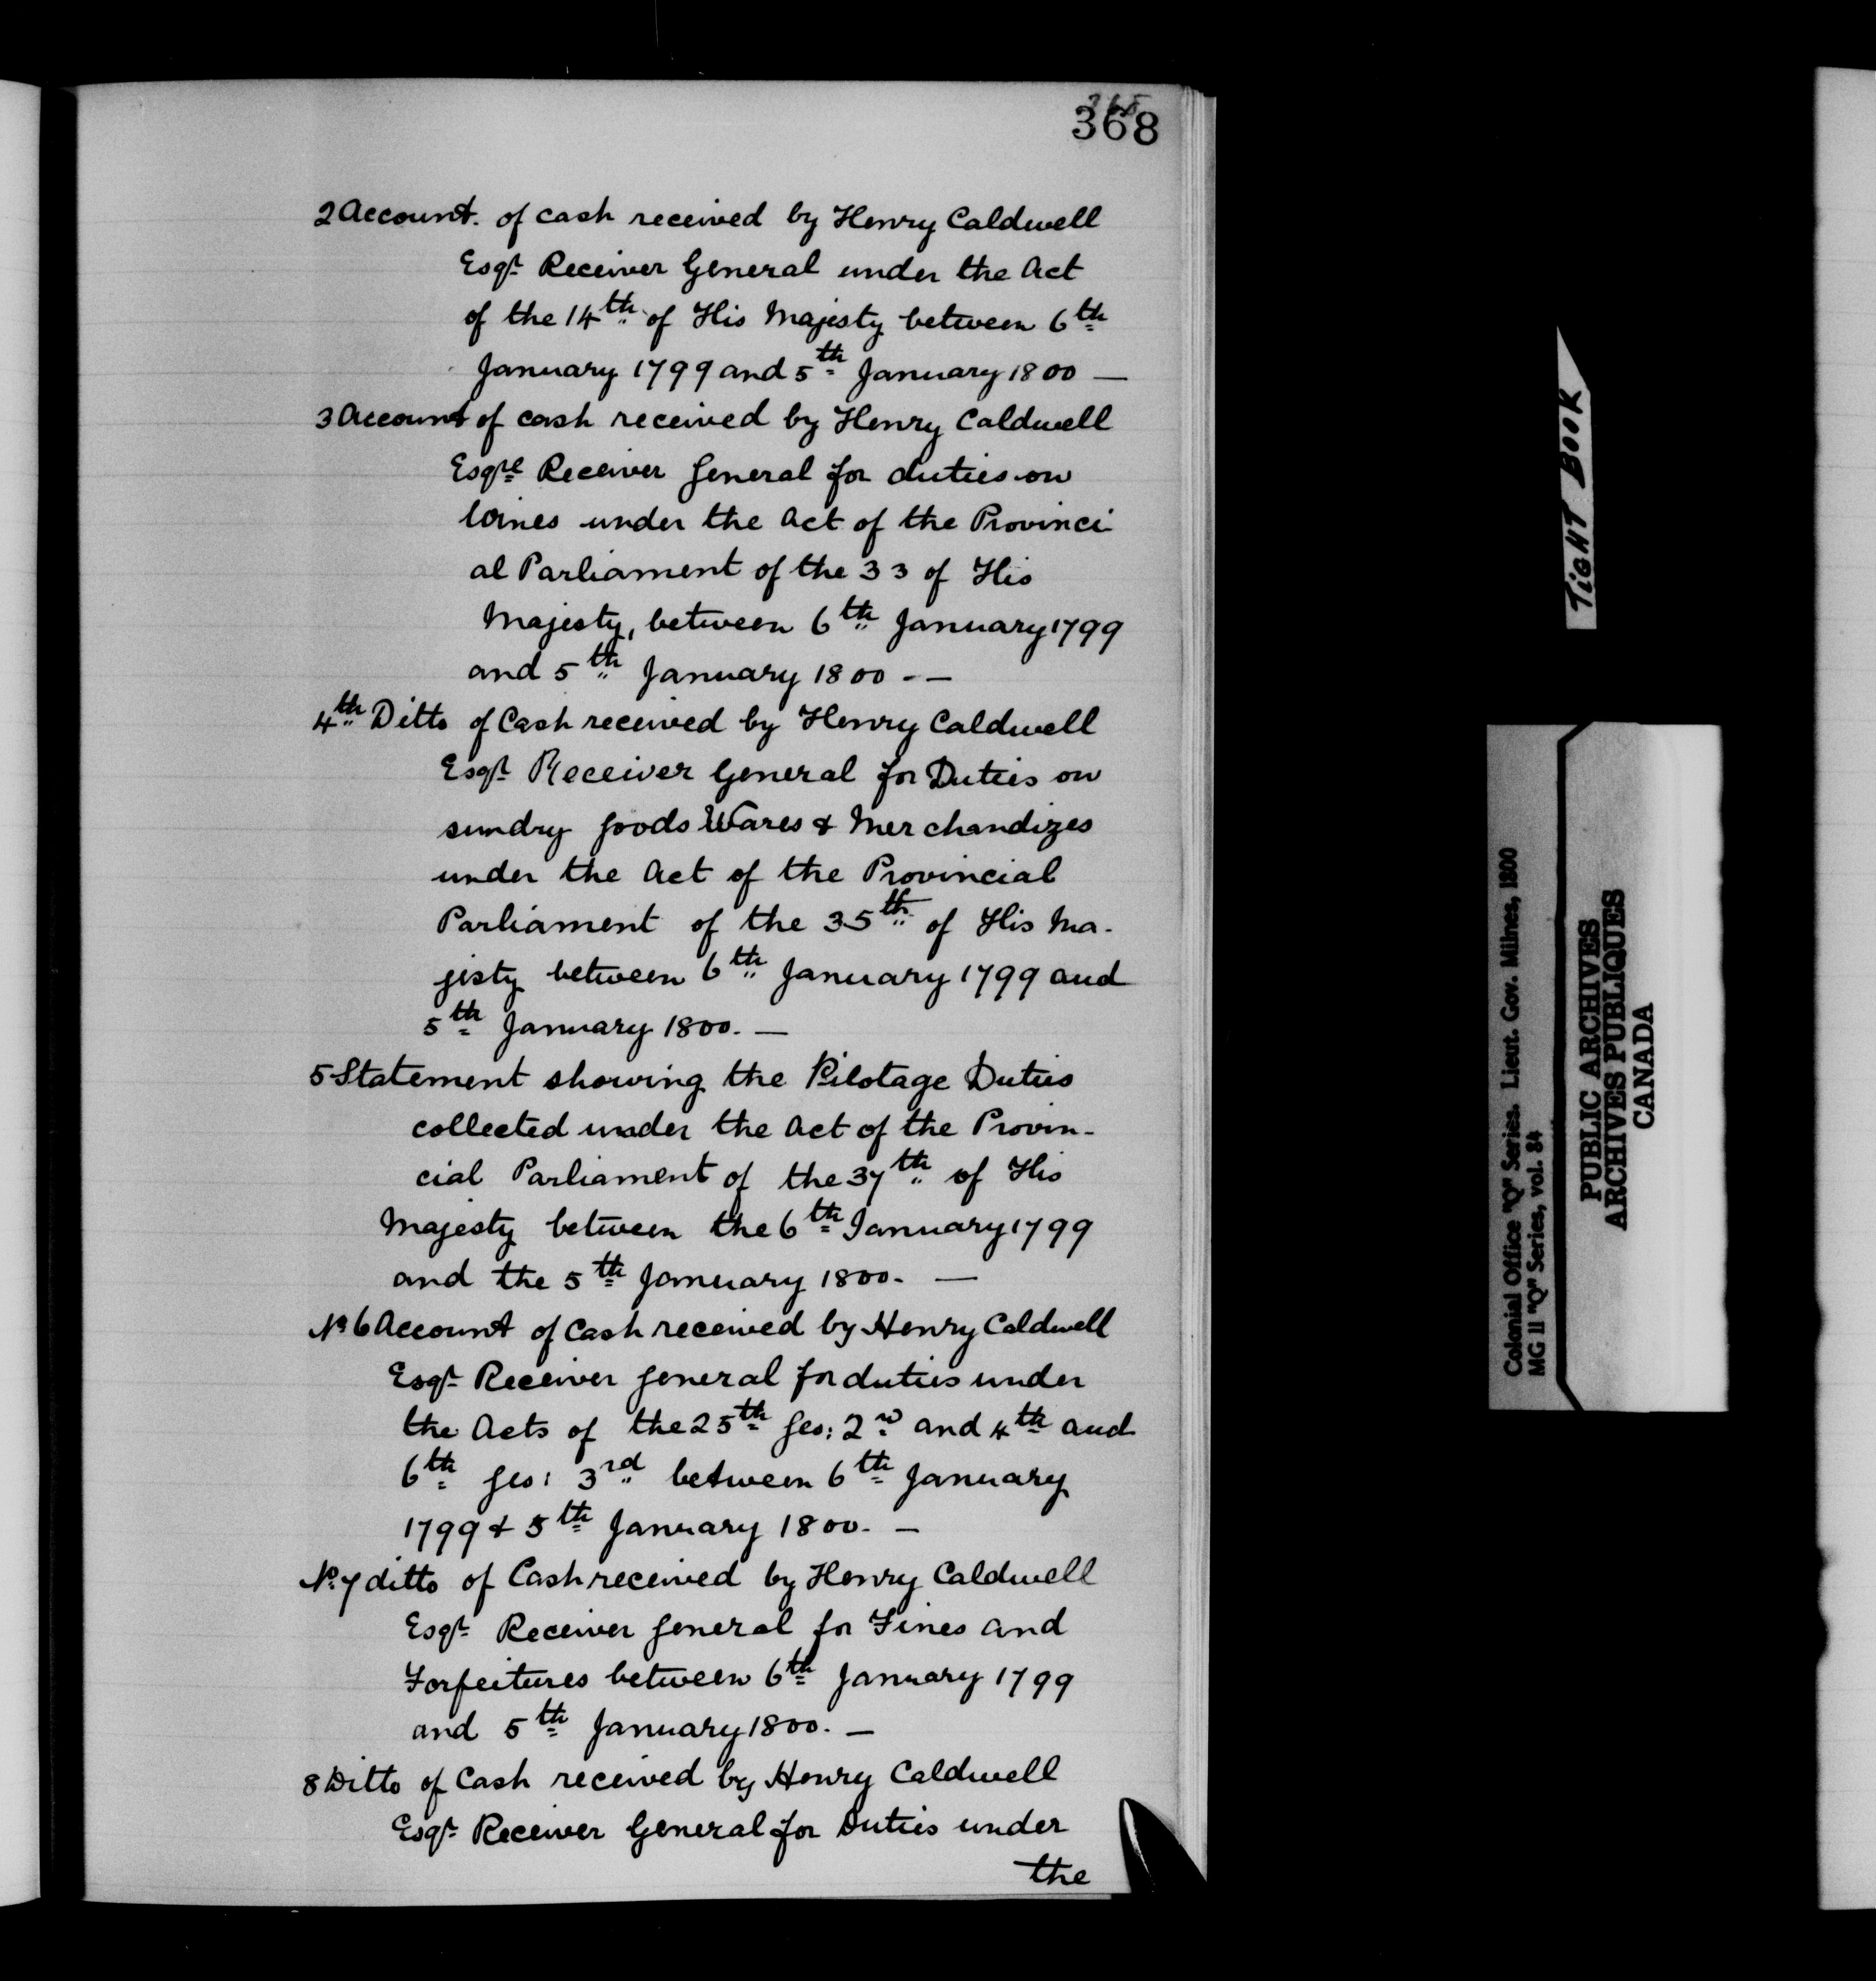 368
2 Account. of cash received by Henry Caldwell
Esqr. Receiver General under the Act
of the 14th of His Majesty between 6th
January 1799 and 5th January 1800 —
3 Account of cash received by Henry Caldwell
Esqre Receiver General for duties on
Wines under the Act of the Provinci
al Parliament of the 33 of His
Majesty, between 6th January 1799
and 5th January 1800 - —
4th Ditto of Cash received by Henry Caldwell
Esqr. Receiver General for Duties on
sundry goods Wares & Merchandizes
under the Act of the Provincial
Parliament of the 35th of His Ma-
jesty between 6th January 1799 and
5th January 1800. —
5 Statement showing the Pilotage Duties
collected under the Act of the Provin-
cial Parliament of the 37th of His
Majesty between the 6th January 1799
and the 5th January 1800. —
No 6 Account of Cash received by Henry Caldwell
Esqr. Receiver General for duties under
the Acts of the 25th Geo: 2nd and 4th and
6th Geo: 3rd between 6th January
1799 & 5th January 1800. —
No. 7 ditto of Cash received by Henry Caldwell
Esqr. Receiver General for Fines and
Forfeitures between 6th January 1799
and 5th January 1800. —
8 Ditto of Cash received by Henry Caldwell
Esqr. Receiver General for Duties under
the
TIGHT BOOK
Colonial Office "Q" Series. Lieut. Gov. Milnes, 1800
MG 11 "Q" Series, vol. 84
PUBLIC ARCHIVES
ARCHIVES PUBLIQUES
CANADA